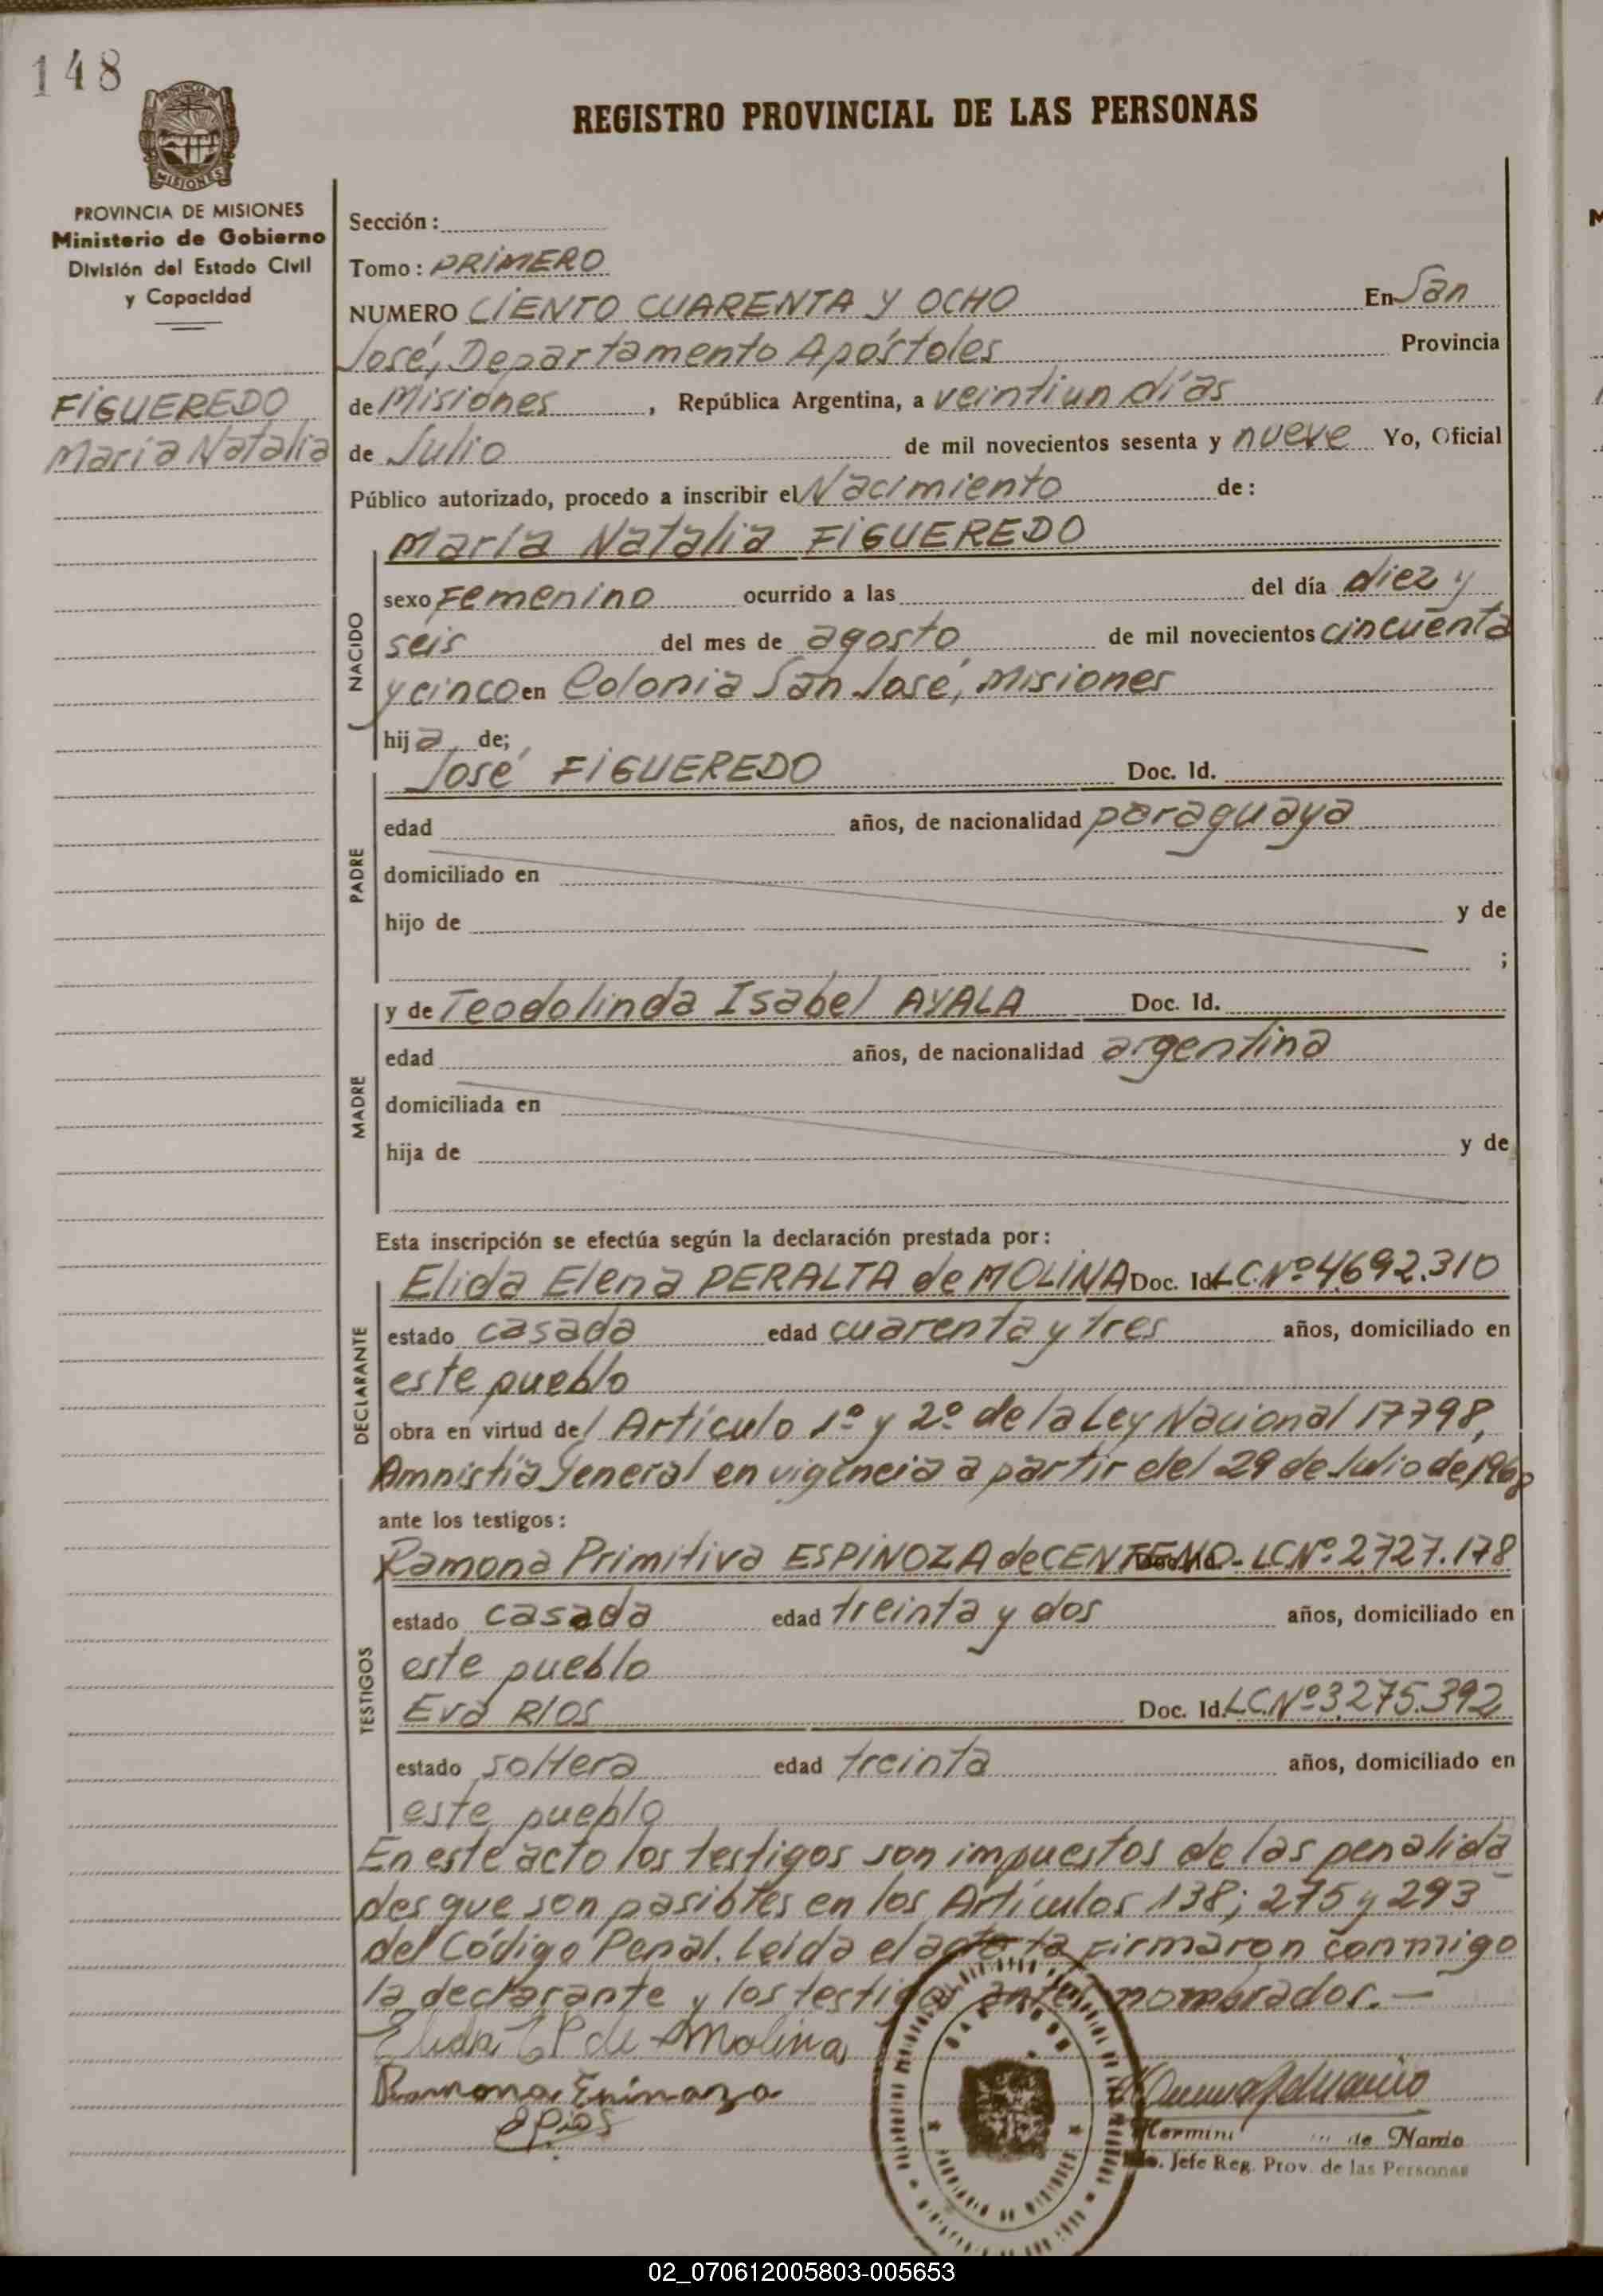 148
PROVINCIA DE
MISIONES
REGISTRO PROVINCIAL DE LAS PERSONAS
PROVINCIA DE MISIONES
Ministerio de Gobierno
División del Estado Civil
y Capacidad
FIGUEREDO
María Natalia
Sección:
Tomo: PRIMERO
NUMERO CIENTO CUARENTA Y OCHO En San
José, Departamento Apóstoles Provincia
de Misiones, República Argentina, a veintiun días
de Julio de mil novecientos sesenta y nueve Yo, Oficial
Público autorizado, procedo a inscribir el Nacimiento de:
María Natalia FIGUEREDO
NACIDO
sexo Femenino ocurrido a las del día diez y
seis del mes de agosto de mil novecientos cincuenta
y cinco en Colonia San José, Misiones
hija de;
José FIGUEREDO Doc. Id.
PADRE
edad años, de nacionalidad paraguaya
domiciliado en
hijo de y de
;
MADRE
y de Teodolinda Isabel AYALA Doc. Id.
edad años, de nacionalidad argentina
domiciliada en
hija de y de
Esta inscripción se efectúa según la declaración prestada por:
DECLARANTE
Elida Elena PERALTA de MOLINA Doc. Id. LC.Nº 4.692.310
estado casada edad cuarenta y tres años, domiciliado en
este pueblo
obra en virtud del Artículo 1º y 2º de la Ley Nacional 17798,
Amnistía General en vigencia a partir del 29 de Julio de 1968
ante los testigos:
TESTIGOS
Ramona Primitiva ESPINOZA de CENTENO - LC Nº 2.727.178
estado casada edad treinta y dos años, domiciliado en
este pueblo
Eva RIOS Doc. Id. LC.Nº 3.275.392
estado soltera edad treinta años, domiciliado en
este pueblo
En este acto los testigos son impuestos de las penalida
des que son pasibles en los Artículos 138; 275 y 293
del Código Penal. Leida el acta la firmaron conmigo
la declarante y los testigos antes nombrados.—
Elida E P de Molina
Ramona Espinoza
E Rios
de Nardo
Jefe Reg. Prov. de las Personas
02_070612005803-005653